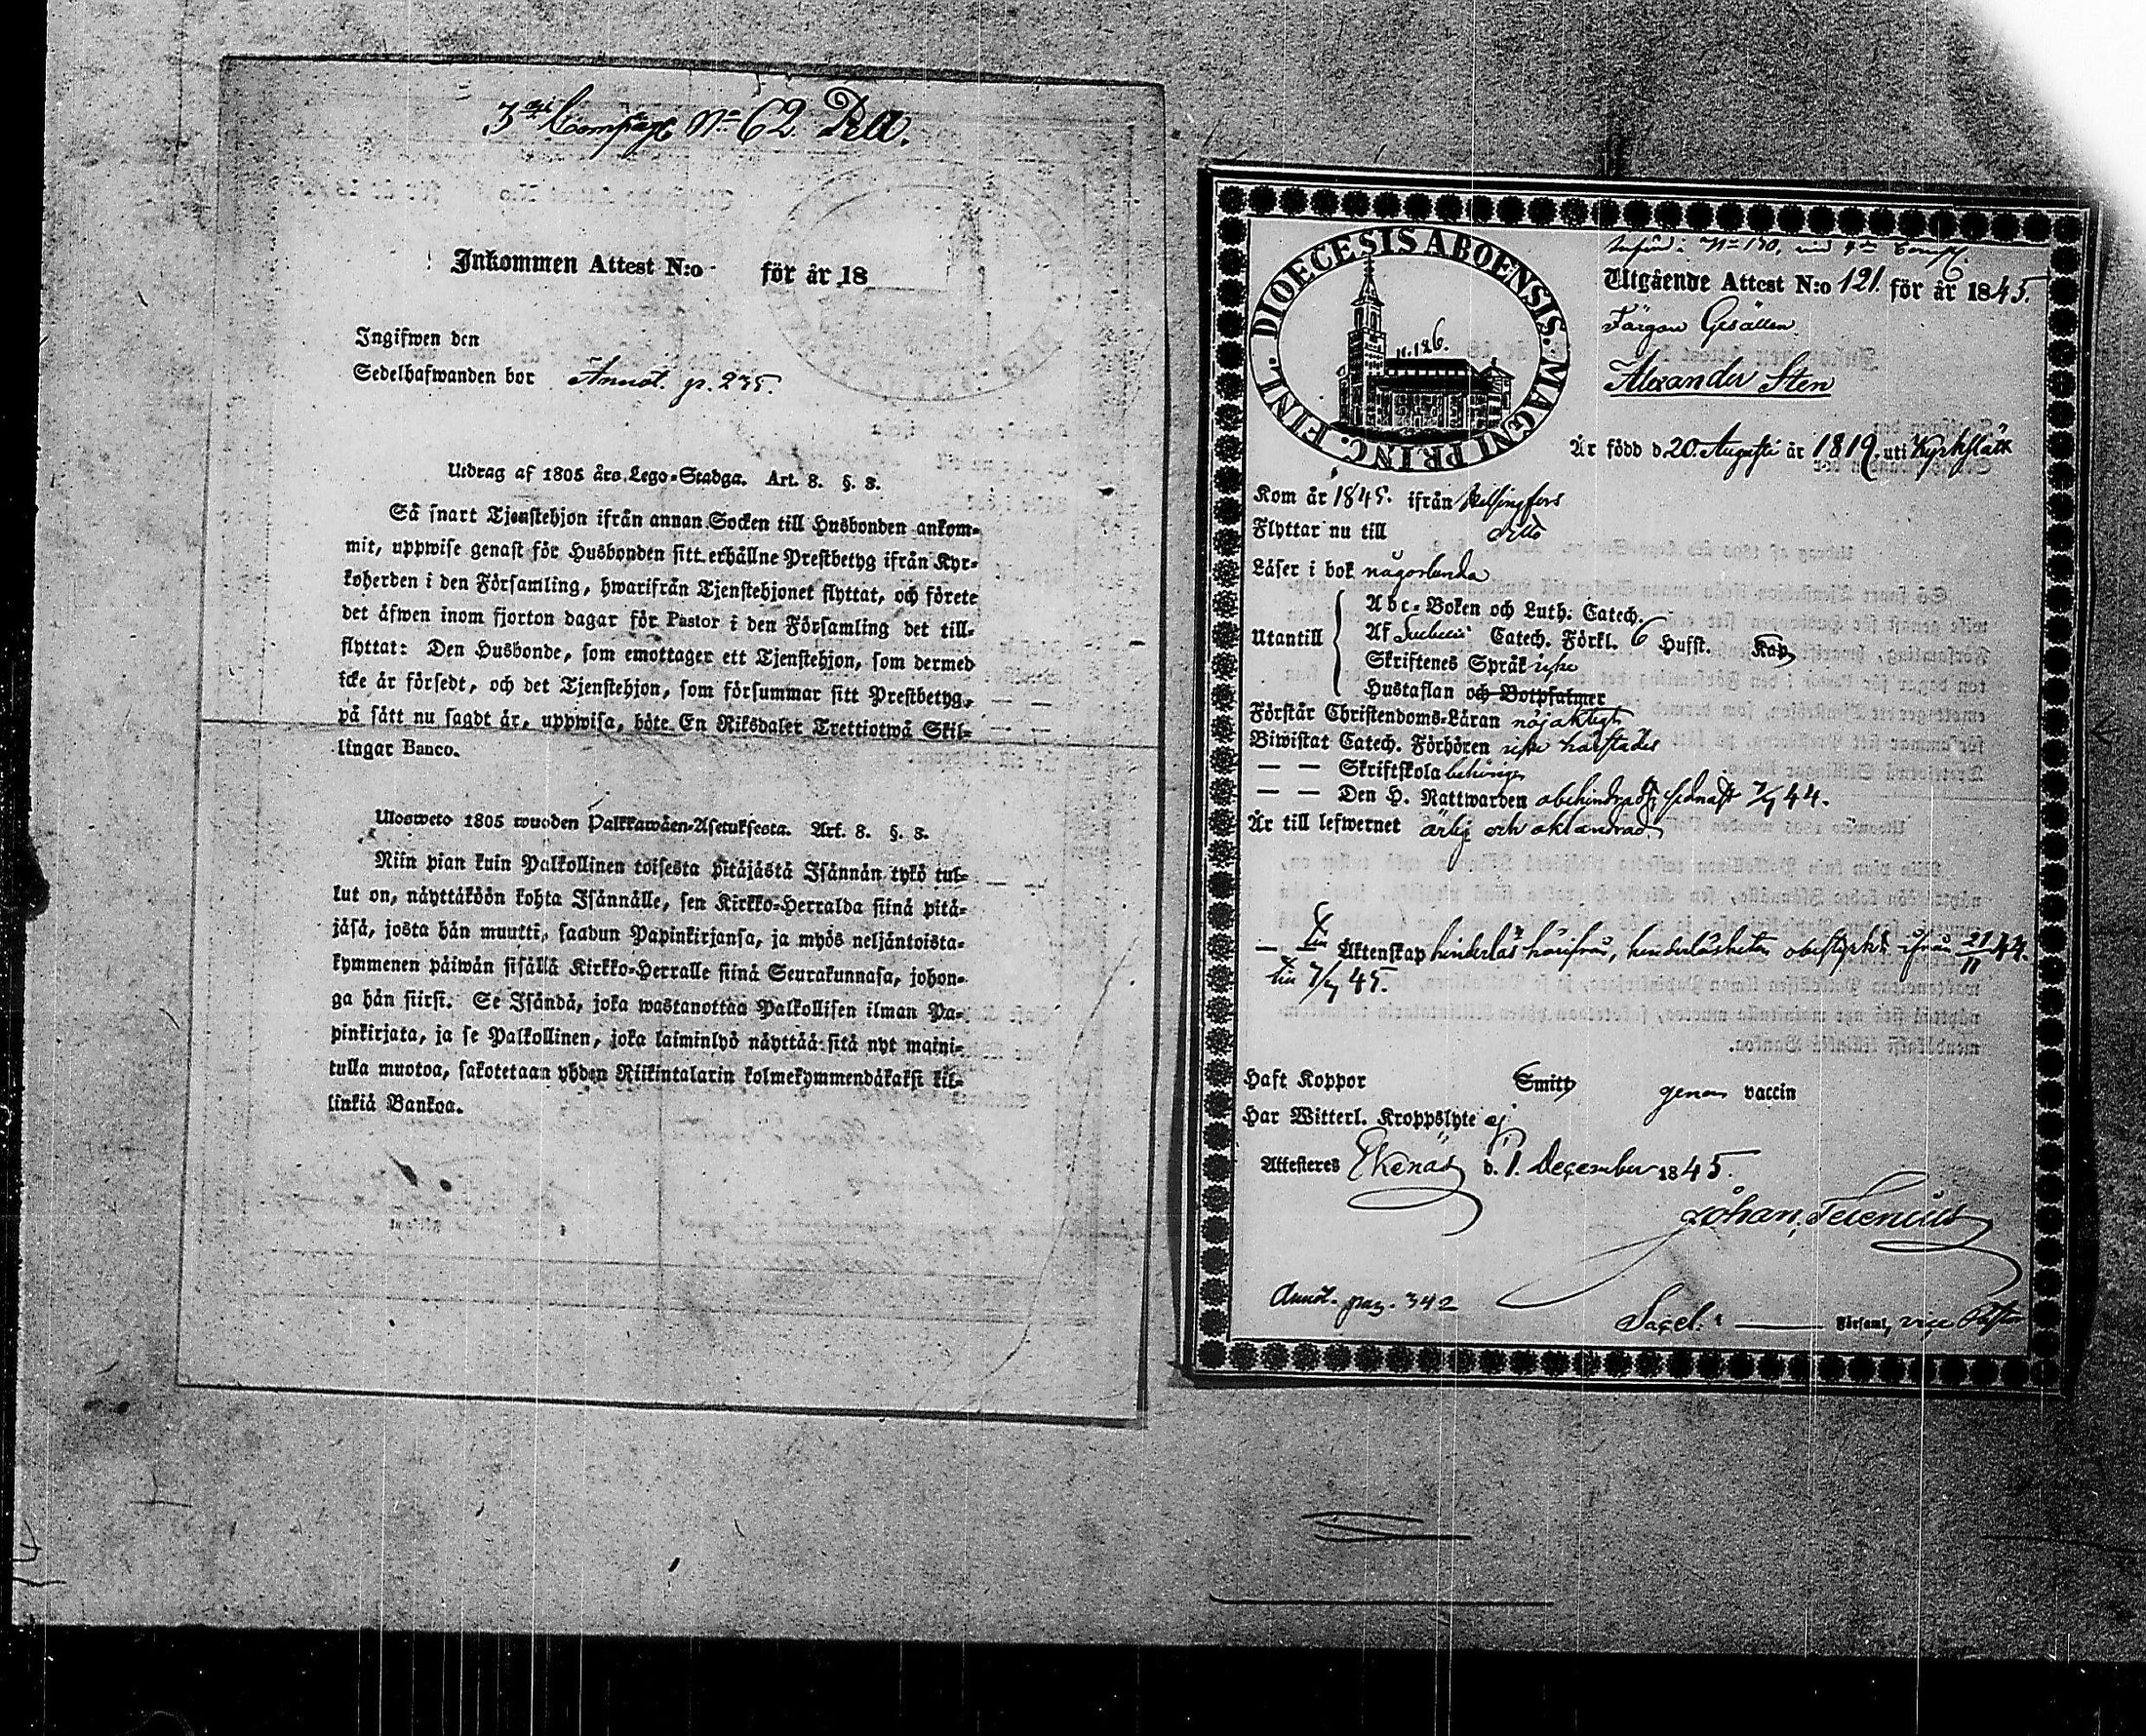 3die Compagn No 62 Pell.
Inkommen Attest N:o för år 18
Ingifwen den
Sedelhafwanden bor Annot. p. 275.
Utdrag af 1805 års Lego-Stadga. Art. 8. §. 8.
Så snart Tjenstehjon ifrån annan Socken till Husbonden ankom-
mit, uppwise genast för Husbonden sitt erhållne Prestbetyg ifrån Kyr-
koherden i den Församling, hwarifrån Tjenstehjonet flyttat, och förete
det äfwen inom fjorton dagar för Pastor i den Församling det till-
flyttat: Den Husbonde, som emottager ett Tjenstehjon, som dermed
icke är försedt, och det Tjenstehjon, som försummar sitt Prestbetyg,
på sätt nu sagdt är, uppwisa, böte En Riksdaler Trettiotwå Skil-
lingar Banco.
Ulosweto 1805 wuoden Palkkawäen-Asetuksesta. Art. 8. §. 8.
Niin pian kuin Palkollinen toisesta pitäjästä Isännän tykö tul-
lut on, näyttäköön kohta Isännälle, sen Kirkko-Herralda siinä pitä-
jäsä, josta hän muutti, saadun Papinkirjansa, ja myös neljäntoista-
kymmenen päiwän sisällä Kirkko-Herralle siinä Seurakunnasa, johon-
ga hän siirsi. Se Isändä, joka wastanottaa Palkollisen ilman Pa-
pinkirjata, ja se Palkollinen, joka laiminlyö näyttää sitä nyt maini-
tulla muotoa, sakotetaan yhden Riikintalarin kolmekymmendäkaksi kil-
linkiä Bankoa.
DIOECESIS ABOENSIS. MAGNI PRINC. FINL.
n. 126.
No 130, vid 4de Comp.
Utgående Attest N:o 121. för år 1845.
Färgare Gesällen
Alexander Sten
Är född d. 20. Augusti år 1819. uti Kyrkslätt
Kom år 1845. ifrån Helsingfors
Flyttar nu till dito
Läser i bok någorlunda
Utantill
Abc-Boken och Luth. Catech.
Af Svebelii Catech. Förkl. 6 Hufst. Kap.
Skriftenes Språk
Hustaflan och Botpsalmer
Förstår Christendoms-Läran nöjaktigt
Biwistat Catech. Förhören härstädes
— — Skriftskola behörigen
— — Den H. Nattwarden obehindrad, sednast 7/9 44.
Är till lefwernet ärlig och oklandrad
— Till Äktenskap hinderlös härifrån, hinderlösheten obestyrkt ifrån 21/11 44.
till 7/9 45.
Haft Koppor Smitt genom vaccin
Har Witterl. Kroppslyte ej
Attesteras Ekenäs d. 1. December 1845.
Johan
Annot. pag. 342
Sacel. i —— Församl, vice Pastor